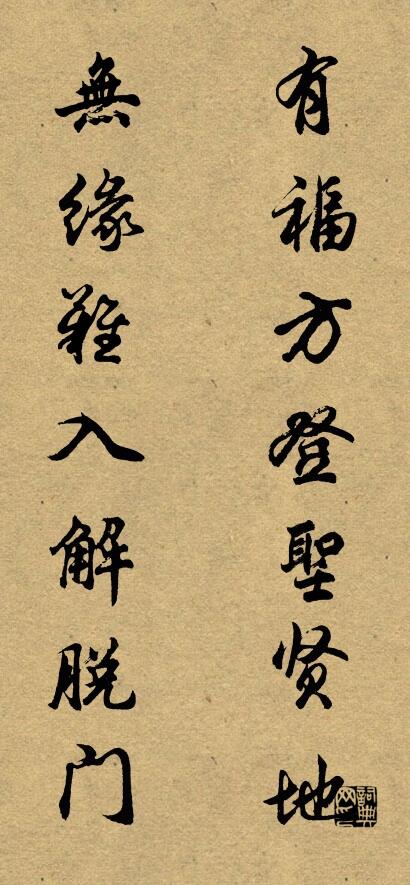 有福方登聖贤地
無缘難入解脱门
詞典网